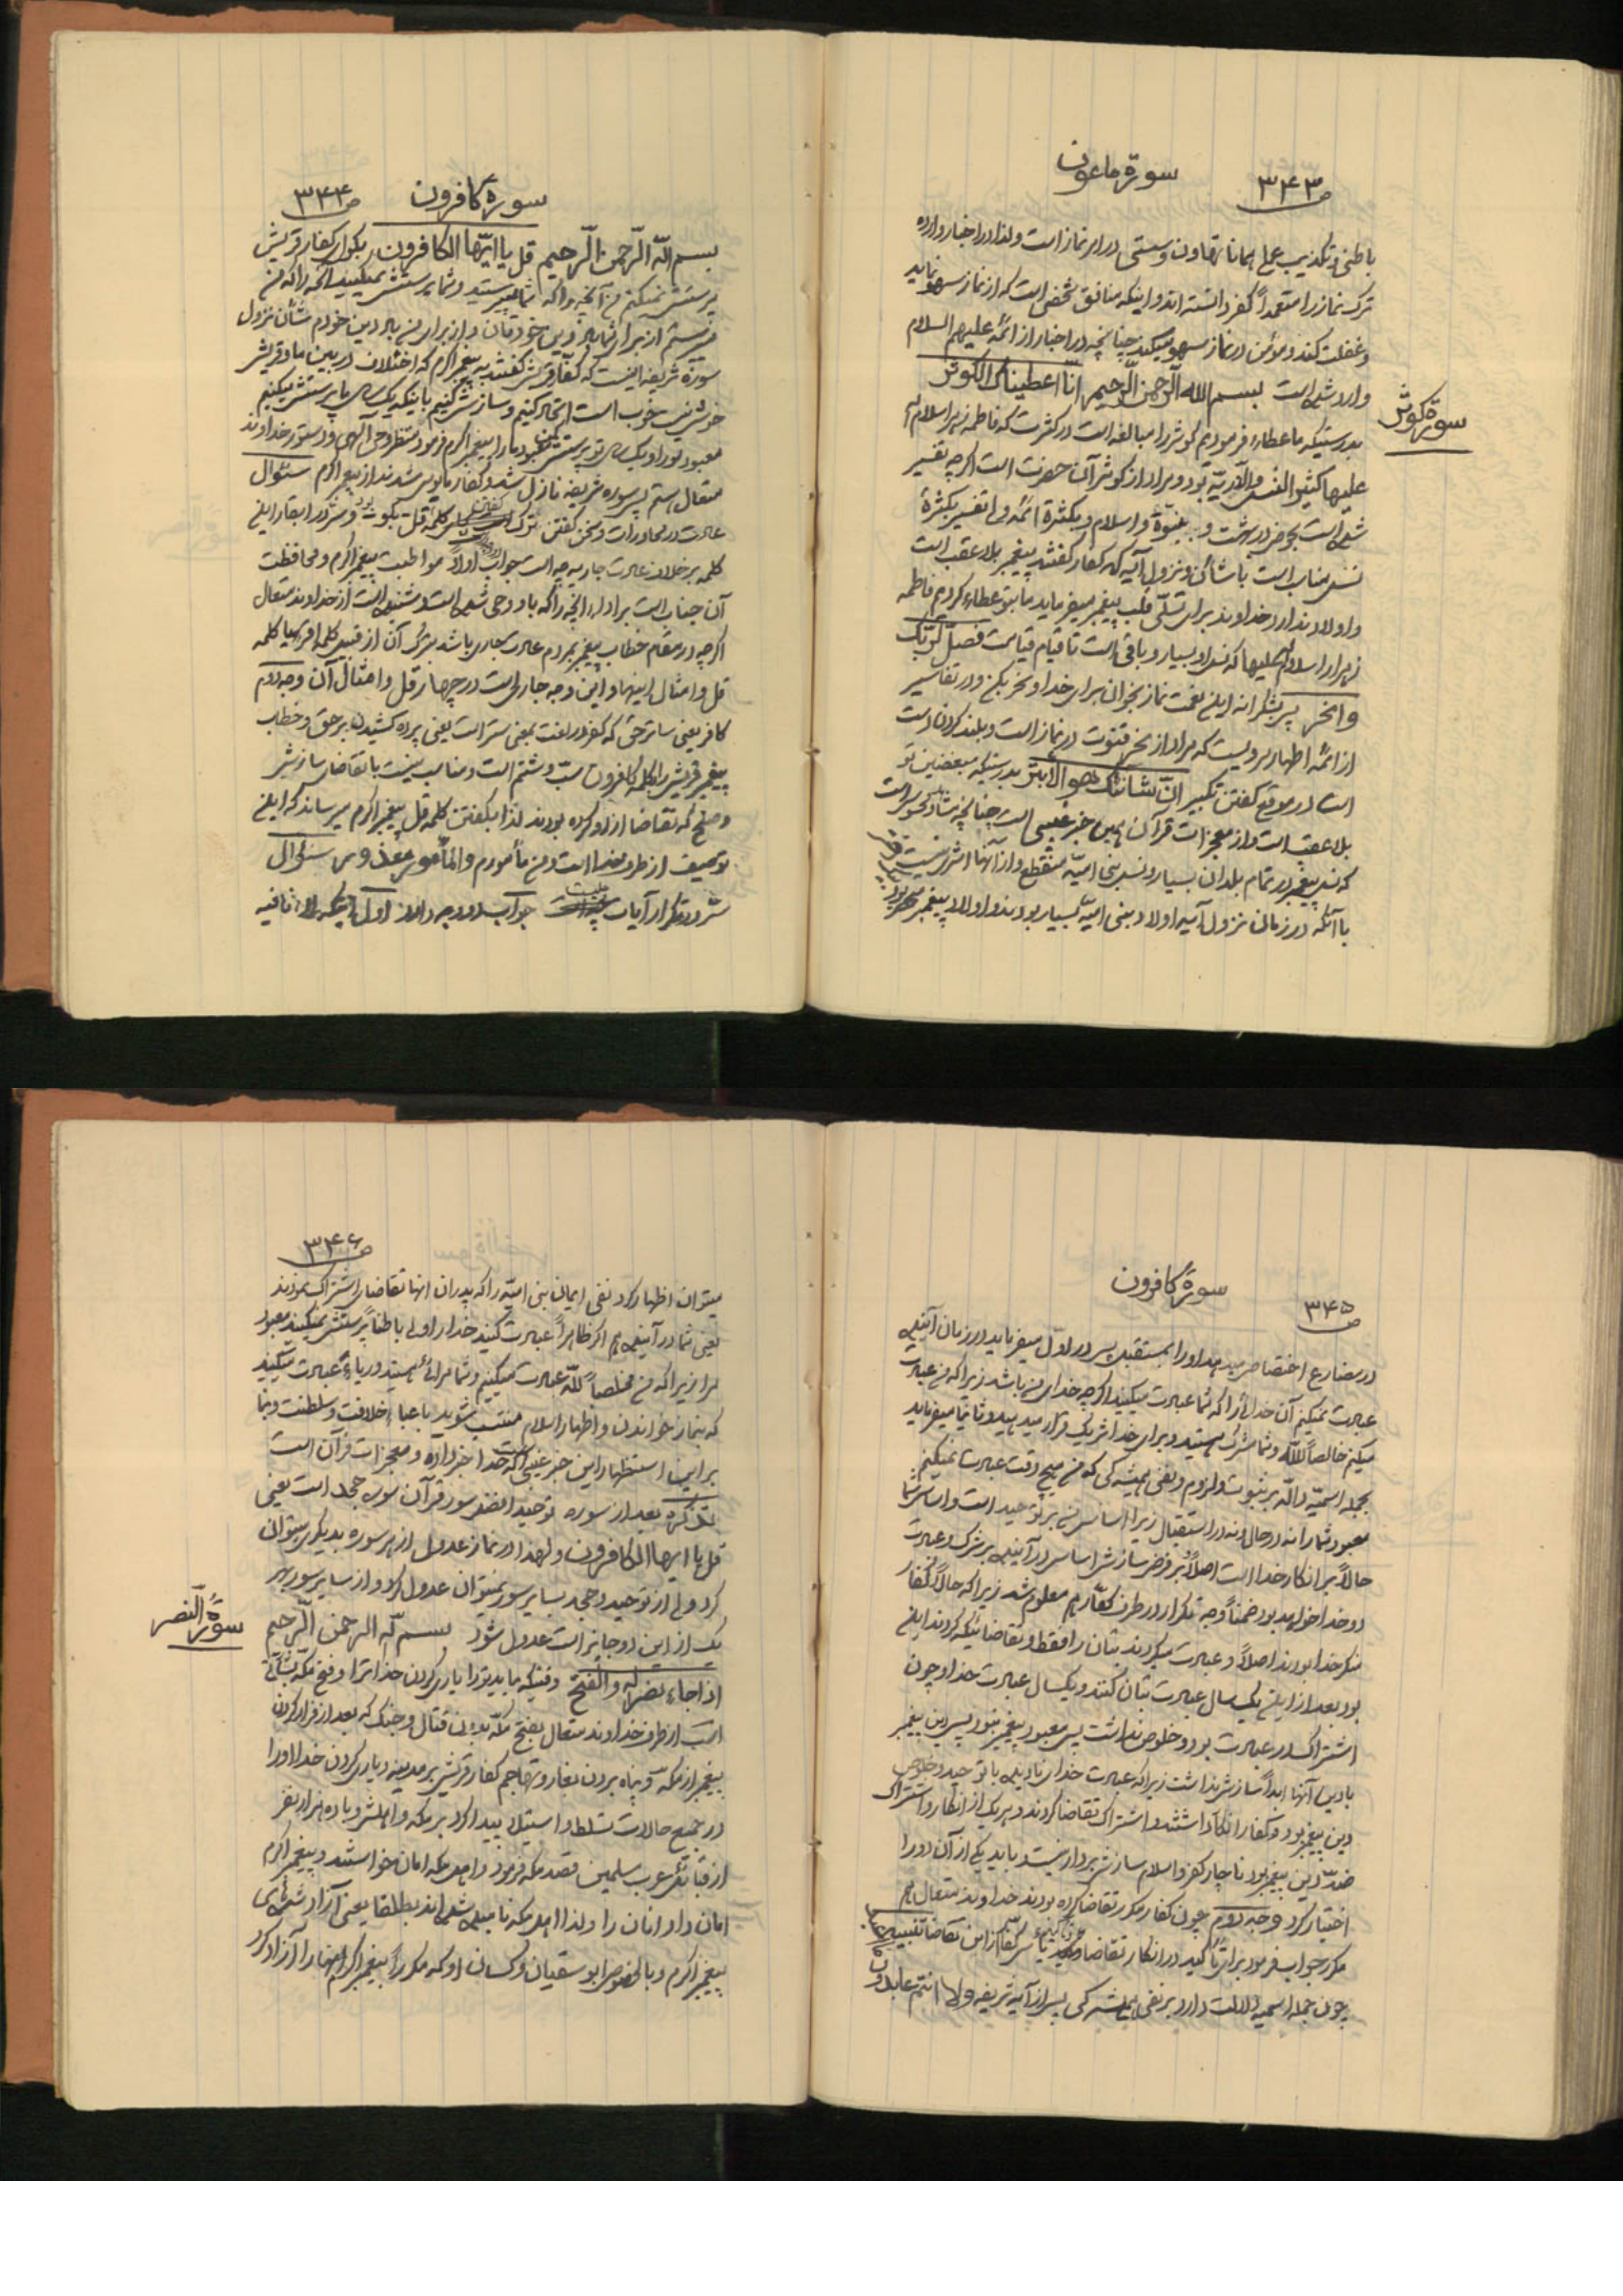 ص ۳۴۳
سورة ماعون
باطنی و تکذیب عملی همانا تهاون و سستی در امر نماز است و لذا در اخبار وارده
ترک نماز را متعمداً کفر دانسته‌اند و اینکه منافق شخصی است که از نماز سهو نماید
و غفلت کند و مؤمن در نماز سهو میکند چنانچه در اخبار از ائمّه علیهم السلام
وارد شده است بسم الله الرّحمن الرّحیم انّا اعطیناک الکوثر
سورة کوثر
بدرستیکه ما عطاء فرمودیم کوثر را مبالغه است در کثرت که فاطمه زهرا سلام الله
علیها کثیر النسل والذّریّة بود و مراد از کوثر آن حضرت است اگرچه تفسیر
شده است بحوض در بهشت و بنبوّة و اسلام و بکثرة ائمّه ولی تفسیر بکثرة
نسل مناسب است با شأن نزول آیه که کفار گفتند پیغمبر بلاعقب است
و اولاد ندارد خداوند برای تسلّی قلب پیغمبر میفرماید ما بتو عطاء کردیم فاطمه
زهرا سلام الله علیها که نسل او بسیار و باقی است تا قیام قیامت فصلّ لربّک
وانحر پس بشکرانه این نعمت نماز بخوان برای خدا و نحر بکن و در تفاسیر
از ائمّه اطهار مرویست که مراد از نحر قنوت در نماز است و بلند کردن دست
است در موقع گفتن تکبیر انّ شانئک هوالابتر بدرستیکه مبغضین تو
بلاعقب است و از معجزات قرآن همین خبر غیبی است چنانچه مشاهد و محسوس است
که نسل پیغمبر در تمام بلدان بسیار و نسل بنی امیّه منقطع و از آنها اثری نیست
با آنکه در زمان نزول آیه اولاد بنی امیّه بسیار بودند و اولاد پیغمبر
سورهٔ کافرون
ص ۳۴۴
بسم اللّه الرّحمن الرّحیم قل یا ایّها الکافرون بگو ای کفار قریش
پرستش نمیکنم من آنچه را که شما میپرستید و شما پرستش نمیکنید آنچه را که من
میپرستم از برای شما باد دین خودتان و از برای من باد دین خودم شأن نزول
سورهٔ شریفه اینست که کفّار قریش گفتند به پیغمبر اکرم که اختلاف در بین ما و قریش
خوش نیست خوب است اتحاد کنیم و سازش کنیم باینکه یک سال ما پرستش میکنیم
معبود تو را و یک سال تو پرستش کن معبود ما را پیغمبر اکرم فرمود منتظر وحی آلهی و دستور خداوند
متعال هستم پس سوره شریفه نازل شد و کفار مأیوس شدند از پیغمبر اکرم سئوال
عادت در محاورات و سخن گفتن ترک کلمهٔ قل بگو و سرّ در ابقاء این
کلمه برخلاف عادت جاریه چه است جواب اولاً مواظبت پیغمبر اکرم و محافظت
آن جناب است بر اداء آنچه را که باو وحی شده است و شنیده است از خداوند متعال
اگرچه در مقام خطاب پیغمبر بمردم عادت جاری باشد بترک آن از قبیل کلمه اقرء یا کلمه
قل و امثال اینها و این وجه جاری است در چهار قل و امثال آن وجه دوم
کافر یعنی ساتر حق که کفر در لغت بمعنی ستر است یعنی پرده کشیدن بر حق و خطاب
پیغمبر قریش را بکلمه کافرون سبّ و شتم است و مناسب نیست با تقاضای سازش
و صلح که تقاضا از او کرده بودند لذا بگفتن کلمه قل پیغمبر اکرم میرساند که این
توصیف از طرف خدا است و من مأمورم والمأمور معذور سئوال
سرّ در تکرار آیات چیست جواب دو وجه دارد اول اینکه لاء نافیه
سورهٔ کافرون
ص ۳۴۵
در مضارع اختصاص میدهد او را بمستقبل پس در اوّل میفرماید در زمان آینده
عبادت نمیکنم آن خدائی را که شما عبادت میکنید اگرچه خدای من باشد زیرا که من عبادت
میکنم خالصاً للّه و شما مشرک هستید و برای خدا شریک قرار میدهید و ثانیاً میفرماید
بجمله اسمیّه دالّه بر ثبوت و لزوم و نفی همیشه گی که من هیچ وقت عبادت نمیکنم
معبود شما را نه در حال و نه در استقبال زیرا اساس من بر توحید است و اساس شما
حالاً بر انکار خدا است اصلاً و بر فرض سازش اساس در آینده بر شرک و عبادت
دو خدا خواهد بود ضمناً وجه تکرار در طرف کفّار هم معلوم شد زیرا که حالاً کفار
منکر خدا بودند اصلاً و عبادت میکردند بتان را فقط و تقاضائیکه کردند این
بود بعد از این یک سال عبادت بتان کنند و یکسال عبادت خدا و چون
اشتراک در عبادت بود و خلوص نداشت پس معبود پیغمبر نبود پس دین پیغمبر
با دین آنها ابداً سازش نداشت زیرا که عبادت خدای نادیده با توحید و خلوص
دین پیغمبر بود و کفار انکار داشتند و اشتراک تقاضا کردند و هر یک از انکار و اشتراک
ضدّ دین پیغمبر بود ناچار کفر و اسلام سازش بردار نیست و باید یکی از آن دو را
اختیار کرد وجه دوم چون کفار مکرر تقاضا کرده بودند خداوند متعال هم
مکرر جواب فرمود برای تأکید در انکار تقاضا و یأس کفّار از این تقاضا
چون جمله اسمیه دلالت دارد بر نفی همیشه گی پس از آیه شریفه ولا انتم عابدون
ص ۳۴۶
میتوان اظهار کرد نفی ایمان بنی امیّه را که پدران آنها تقاضای اشتراک نمودند
یعنی شما در آینده هم اگر ظاهراً عبادت کنید خدا را ولی باطناً پرستش نمیکنید معبود
مرا زیرا که من مخلصاً للّه عبادت میکنیم و شما مرائی هستید و ریاءً عبادت میکنید
که بنماز خواندن و اظهار اسلام منتسب شوید باعباء خلافت و سلطنت و بنا
بر این استظهار این خبر غیبی است که خدا خبر داده و معجزات قرآن است
تذکره بعد از سوره توحید افضل سور قرآن سوره جحد است یعنی
قل یا ایها الکافرون و لهذا در نماز عدول از هر سوره بدیگری میتوان
کرد ولی از توحید و جحد بسایر سور نمیتوان عدول کرد و از سایر سور بهر
یک از این دو جایز است عدول شود بسم اللّه الرحمن الرّحیم
سورة النصر
اذا جاء نصر الله والفتح وقتیکه بیاید تو را یاری کردن خدا ترا و فتح مکّه بشارتی
است از طرف خداوند متعال بفتح مکّه بدون قتال و جنگ که بعد از فرار کردن
پیغمبر از مکّه و پناه بردن بغار و تهاجم کفار قریش بر مدینه و یاری کردن خدا او را
در جمیع حالات تسلط و استیلاء پیدا کرد بر مکه و اهلش و با ده هزار نفر
از قبائل عرب مسلمین قصد مکه فرمود و اهل مکه امان خواستند و پیغمبر اکرم
امان داد آنان را و لذا اهل مکه نامیده شده‌اند بطلقا یعنی آزاد شده‌های
پیغمبر اکرم و بالخصوص ابوسفیان و کسان او که مکرراً پیغمبر اکرم آنها را آزاد کرد